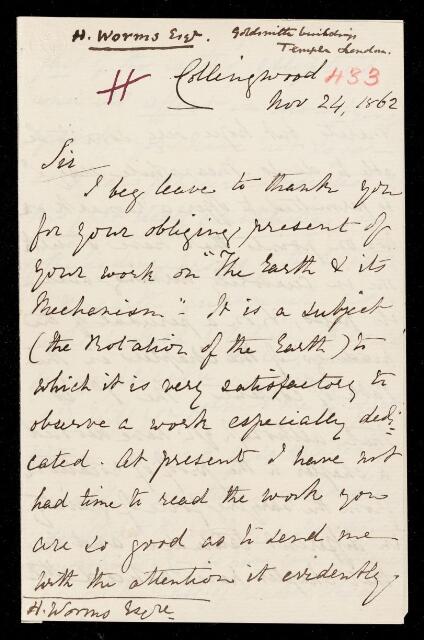 H. Worms Esqr. Goldsmiths buildings
Temple London.
H Collingwood 433
Nov 24, 1862
Sir
I beg leave to thank you
for your obliging present of
your work on "The Earth & its
Mechanism". It is a subject
(the Rotation of the Earth) to
which it is very satisfactory to
observe a work especially dedi-
cated. At present I have not
had time to read the work you
are so good as to send me
with the attention it evidently
H. Worms Esqre